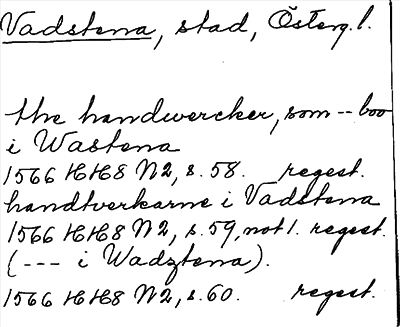 Vadstena, stad, Österg.l.
the handwercker, som -- boo
i Wastena
1566 HH8 N2, s. 58. regest.
handtverkarne i Vadstena
1566 HH8 N2, s. 59, not 1. regest.
(--- i Wadztena).
1566 HH8 N2, s. 60. regest.